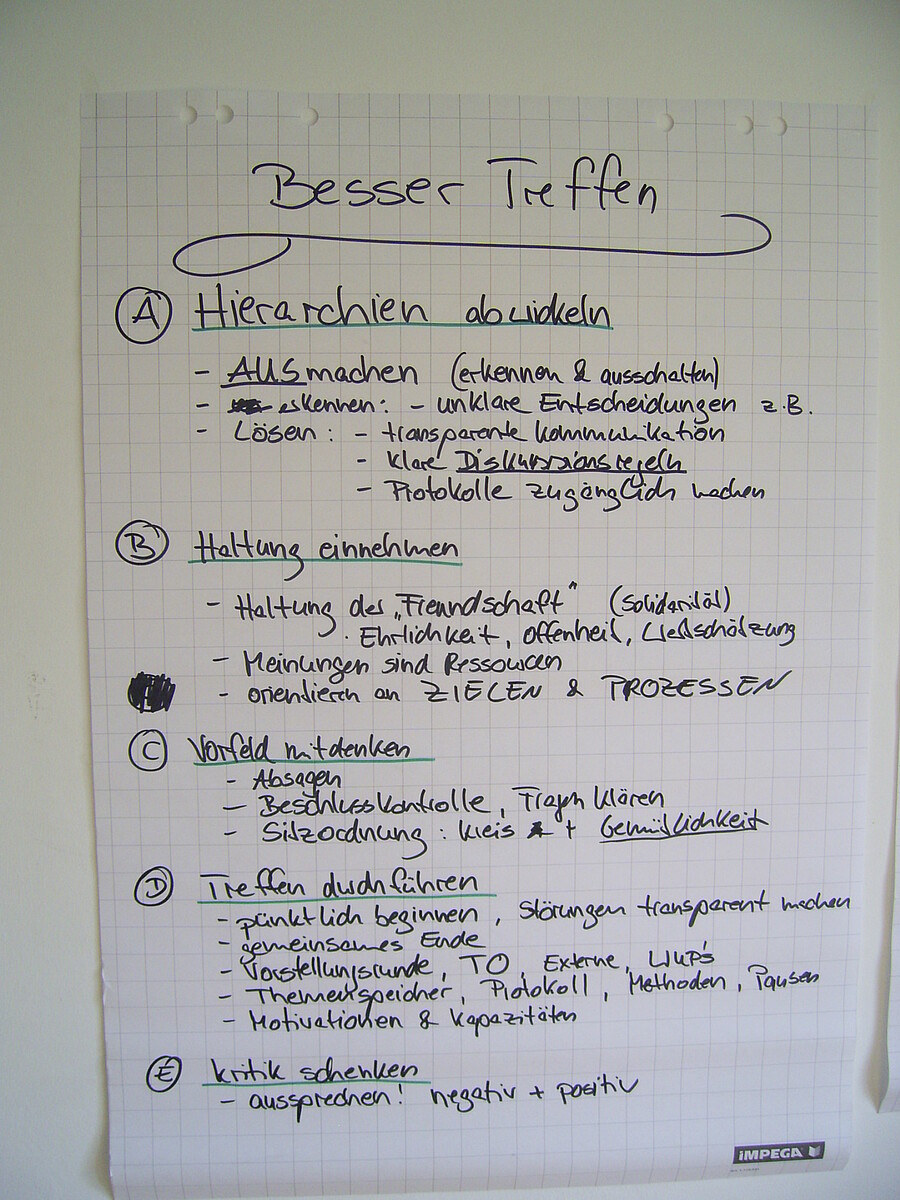 Besser Treffen
A Hierarchien abwickeln
- AUSmachen (erkennen & ausschalten)
- erkennen: - unklare Entscheidungen z.B.
- Lösen: - transparente Kommunikation
- klare Diskussionsregeln
- Protokolle zugänglich machen
B Haltung einnehmen
- Haltung der „Freundschaft" (Solidarität)
· Ehrlichkeit, Offenheit, Wertschätzung
- Meinungen sind Ressourcen
- orientieren an ZIELEN & PROZESSEN
C Vorfeld mitdenken
- Absagen
- Beschlusskontrolle, Fragen klären
- Sitzordnung: Kreis + Gemütlichkeit
D Treffen durchführen
- pünktlich beginnen, Störungen transparent machen
- gemeinsames Ende
- Vorstellungsrunde, TO, Externe, WUP's
- Themenspeicher, Protokoll, Methoden, Pausen
- Motivationen & Kapazitäten
E Kritik schenken
- aussprechen! negativ + positiv
IMPEGA